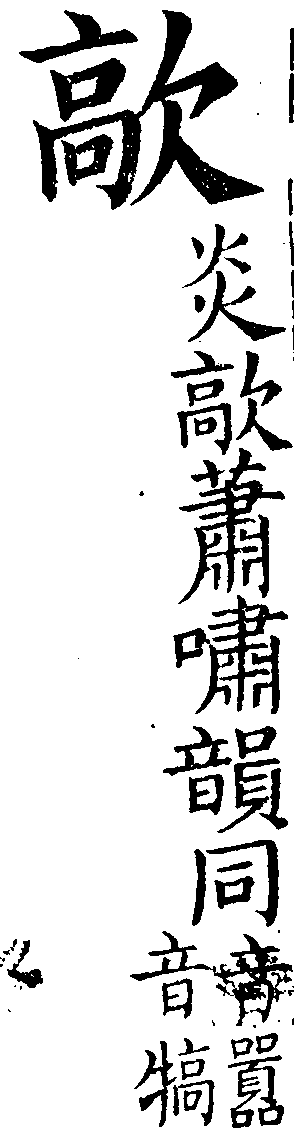 歊
炎歊蕭嘯韻同
音囂
音犒